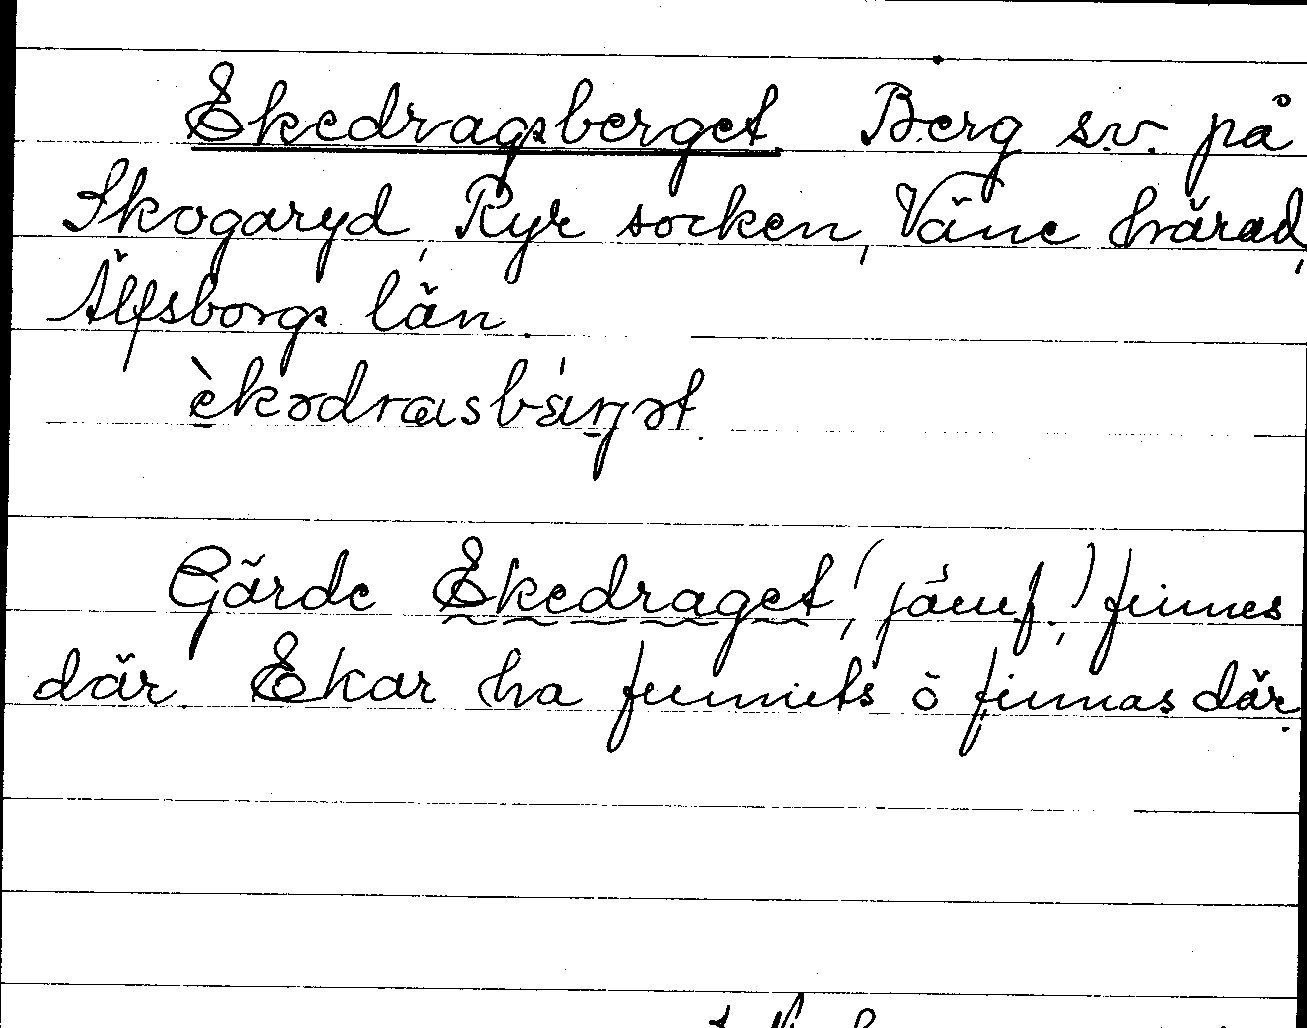 Ekedragsberget. Berg s.v. på
Skogaryd, Ryr socken, Väne härad,
Älfsborgs län.
èkədrasbár̡ət.
Gärde Ekedraget, (jämf.,) finnes
där. Ekar ha funnits o finnas där.